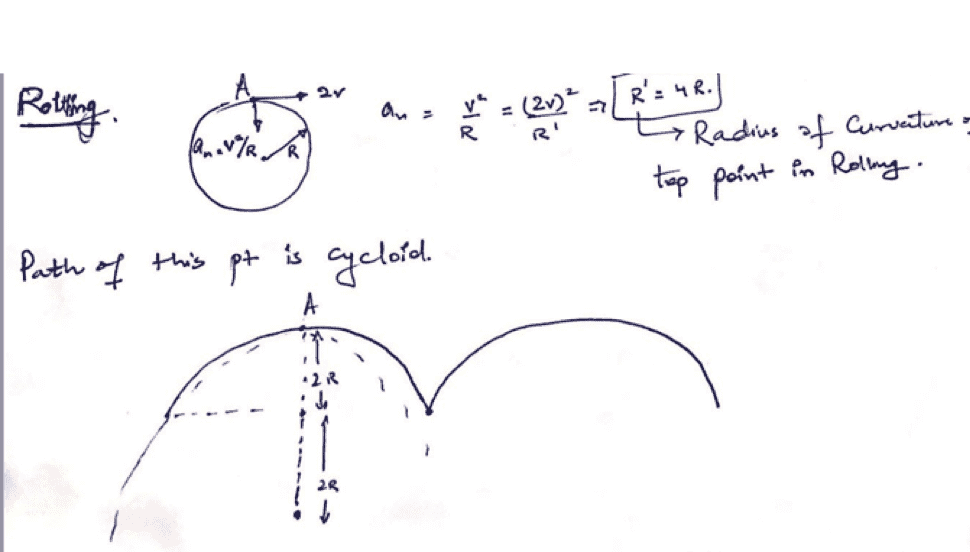 Rolling.
A
2v
aₙ = v²/R
R
aₙ = v²/R = (2v)²/R' ⇒ R' = 4R.
→ Radius of Curvature of
top point in Rolling.
Path of this pt is cycloid.
A
2R
2R